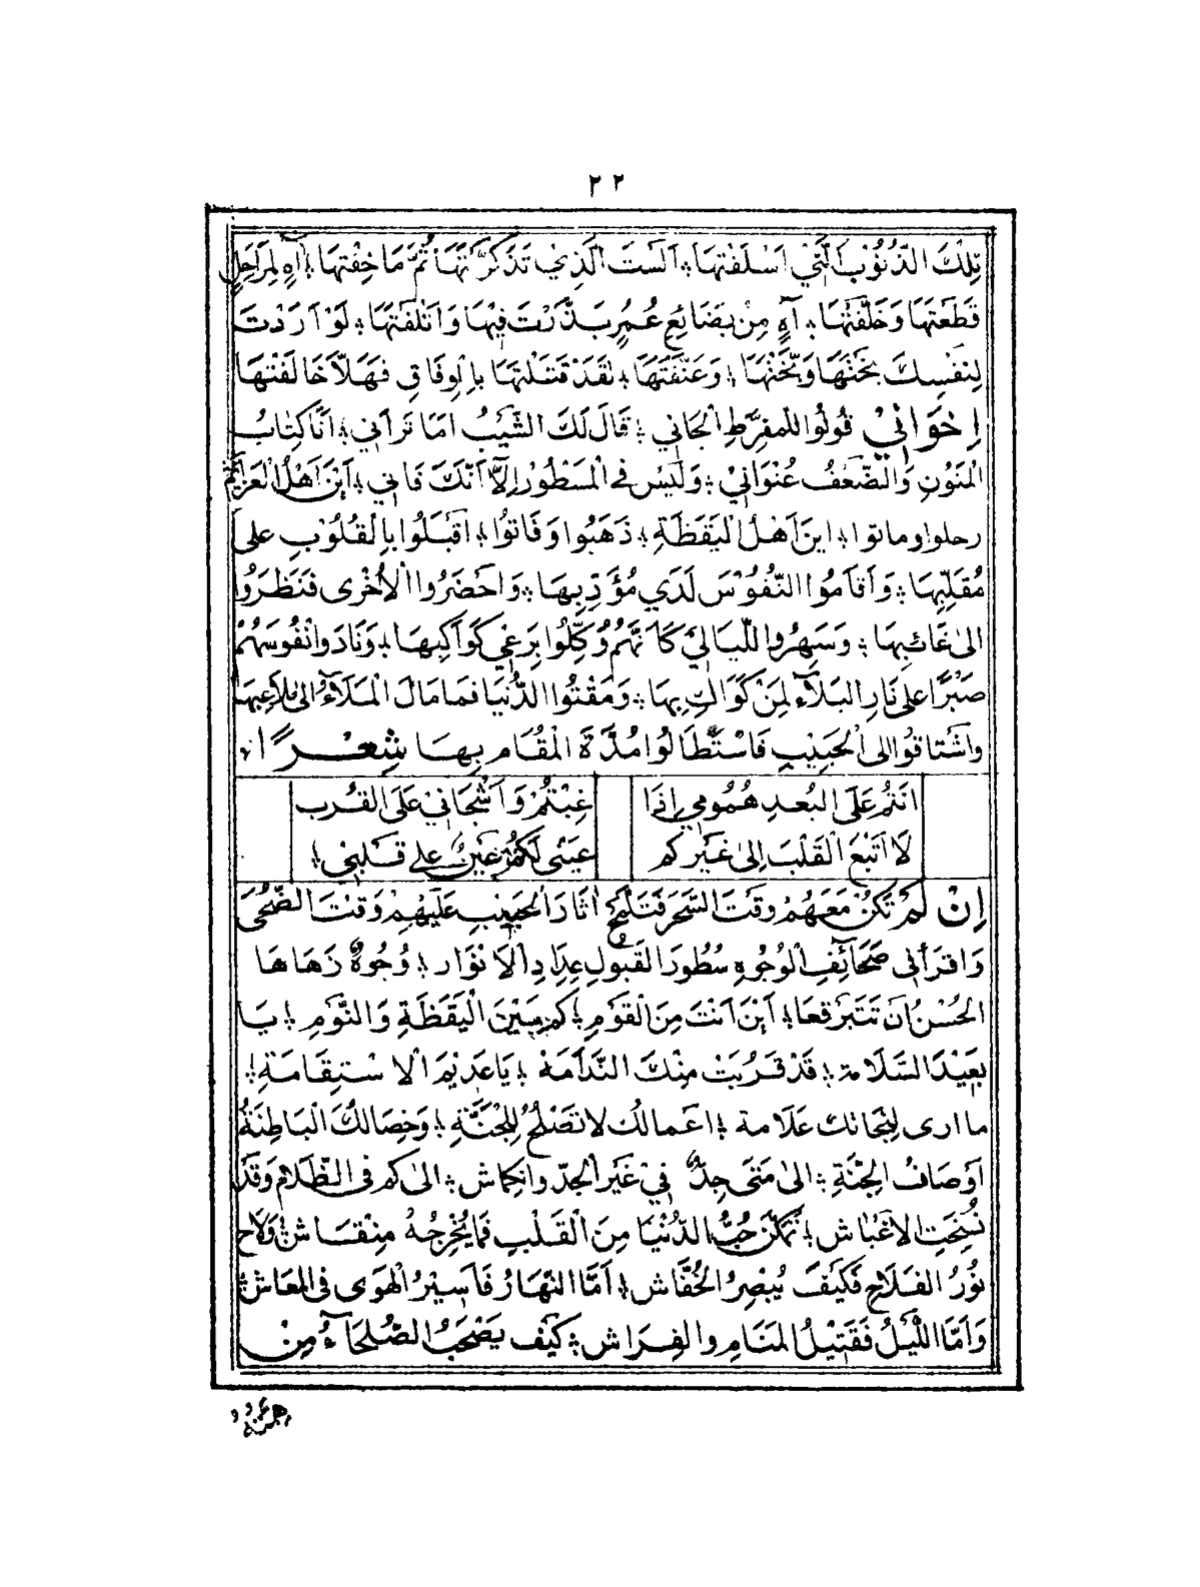 ٢٢
تِلْكَ الذُّنُوْبَ الَّتِيْ اَسْلَفْتَهَا ؛ اَلَسْتَ الَّذِيْ تَذَكَّرْتَهَا ثُمَّ مَا خِفْتَهَا ؛ اٰهِ لِمَرَاحِلٍ
قَطَعْتَهَا وَخَلَّفْتَهَا ؛ آهٍ مِنْ بَضَائِعِ عُمُرٍ بَذَّرْتَ فِيْهَا وَاَتْلَفْتَهَا ؛ لَوْ اَرَدْتَ
لِنَفْسِكَ وَعَنَّفْتَهَا ؛ لَقَدْ قَتَلْتَهَا بِالْوِفَاقِ فَهَلَّا خَالَفْتَهَا
اِخْوَانِيْ قُوْلُوْا لِلْمُفَرِّطِ الْجَانِي ؛ قَالَ لَكَ الشَّيْبُ اَمَا تَرَانِي ؛ اَنَا كِتَابُ
الْمَنُوْنِ وَالضَّعْفُ عُنْوَانِيْ ؛ وَلَيْسَ فِي الْمَسْطُوْرِ اِلَّا اَنَّكَ فَانِي ؛ اَيْنَ اَهْلُ الْعَزَائِمِ
رحلوا وماتوا ؛ اينَ اَهْلُ الْيَقَظَةِ ؛ ذَهَبُوا وَفَاتُوْا ؛ اَقْبَلُوا بِالْقُلُوْبِ عَلىٰ
مُقَلِّبِهَا ؛ وَاَقَامُوا النُّفُوْسَ لَدَي مُؤَدِّبِهَا ؛ وَاَحْضَرُوا الْاُخْرٰى فَنَظَرُوْا
الىٰ غَائِبِهَا ؛ وَسَهِرُوا اللَّيَالِيَ كَاَنَّهُمْ وُكِّلُوا بِرَعْيِ كَوَاكِبِهَا ؛ وَنَادَوا نُفُوْسَهُمْ
صَبْرًا عَلىٰ نَارِ الْبَلَاءِ لِمَنْ كَوَاكِ بِهَا ؛ وَمَقْتُوا الدُّنْيَا فَمَا مَالَ الْمَلَاءُ الىٰ مَلَاعِبِهَا
وَاشْتَاقُوْا الى الْحَبِيْبِ فَاسْتَطَالُوا مُدَّةَ الْمُقَامِ بِهَا شِعْرًا ؛
اَنْتُمْ عَلَى الْبُعْدِ هُمُوْمِي اِذَا غِبْتُمْ وَاَشْجَانِيْ عَلَى الْقُرْبِ
لَا اَتْبَعَ الْقَلْبَ اِلىٰ غَيْرِكُمْ عَيْنِي لَكُمْ عَيْنٌ عَلىٰ قَلْبِي ؛
اِنْ لَمْ تَكُنْ مَعَهُمْ وَقْتَ السَّحَرِ فَتَلَمَّحْ اٰثَارَ الْحَبِيْبِ عَلَيْهِمْ وَقْتَ الضُّحٰى
وَاقْرَأْ فِي صَحَائِفِ الْوُجُوْهِ سُطُوْرَ الْقَبُوْلِ بِمِدَادِ الْاَنْوَارِ ؛ وُجُوْهٌ زَهَاهَا
الْحُسْنُ اَنْ تَتَبَرْقَعَا ؛ اَيْنَ اَنْتَ مِنَ الْقَوْمِ ؛ كَمْ بَيْنَ الْيَقَظَةِ وَالنَّوْمِ ؛ يَا
بَعِيْدَ السَّلَامَةِ ؛ قَدْ قَرُبَتْ مِنْكَ النَّدَامَةُ ؛ يَا عَدِيْمَ الْاِسْتِقَامَةِ ؛
مَا ارى لِنَجَاتِكَ عَلَامَة ؛ اَعْمَالُكَ لَا تَصْلُحُ لِلْجَنَّةِ ؛ وَخِصَالُكَ الْبَاطِنَةُ
اَوْصَافُ الْجِنَّةِ ؛ الىٰ مَتَى جِدٌّ فِيْ غَيْرِ الْجِدِّ وَانْكِمَاش ؛ الىٰ كَمْ فِي الظَّلَامِ وَقَدْ
نُسِخَتِ الْاَغْبَاش ؛ تَمَكَّنَ حُبُّ الدُّنْيَا مِنَ الْقَلْبِ فَمَا يُخْرِجُهُ مِنْقَاش ؛ وَلَاحَ
نُوْرُ الْفَلَاحِ فَكَيْفَ يُبْصِرُ الْخُفَّاش ؛ اَمَّا النَّهَارُ فَاَسِيْرُ الْهَوٰى فِي الْمَعَاش ؛
وَاَمَّا اللَّيْلُ فَقَتِيْلُ الْمَنَامِ وَالْفِرَاش ؛ كَيْفَ يَصْحَبُ الصُّلَحَآءُ مِنْ